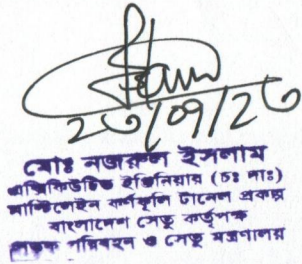 ২৩/০৭/২৩
মোঃ নজরুল ইসলাম
এক্সিকিউটিভ ইঞ্জিনিয়ার (চঃ দাঃ)
মাল্টিলেইন কর্ণফুলি টানেল প্রকল্প
বাংলাদেশ সেতু কর্তৃপক্ষ
সড়ক পরিবহন ও সেতু মন্ত্রণালয়